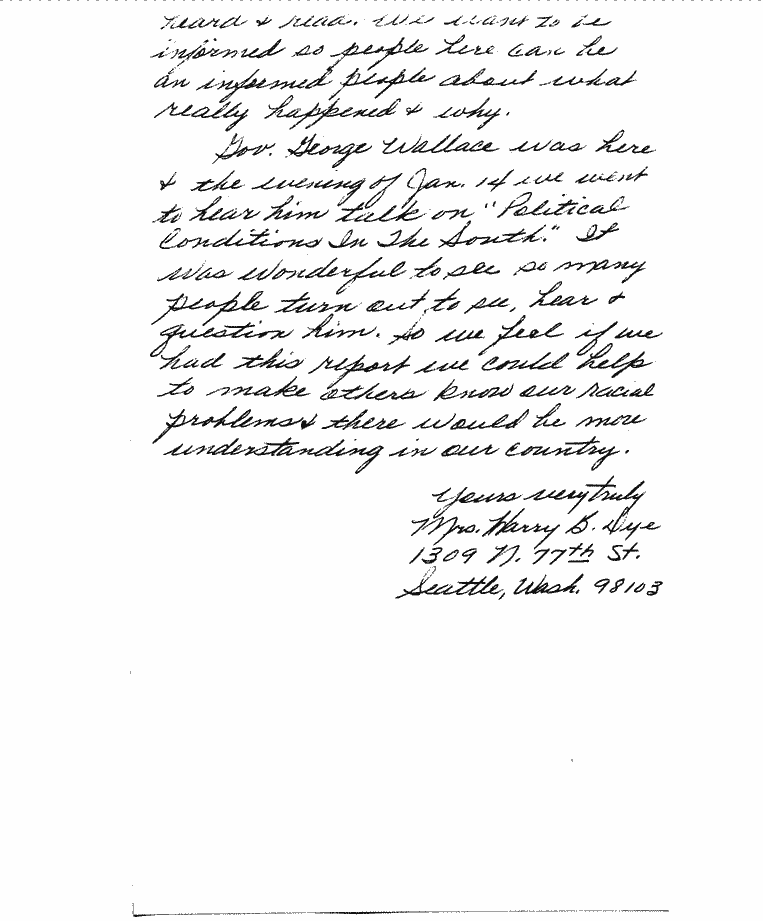 heard & read. We want to be
informed so people here can be
an informed people about what
really happened & why.
Gov. George Wallace was here
& the evening of Jan. 14 we went
to hear him talk on "Political
Conditions In The South." It
was wonderful to see so many
people turn out to see, hear &
question him. So we feel if we
had this report we could help
to make others know our racial
problems & there would be more
understanding in our country.
Yours very truly
Mrs. Harry B. Dye
1309 N. 77th St.
Seattle, Wash. 98103